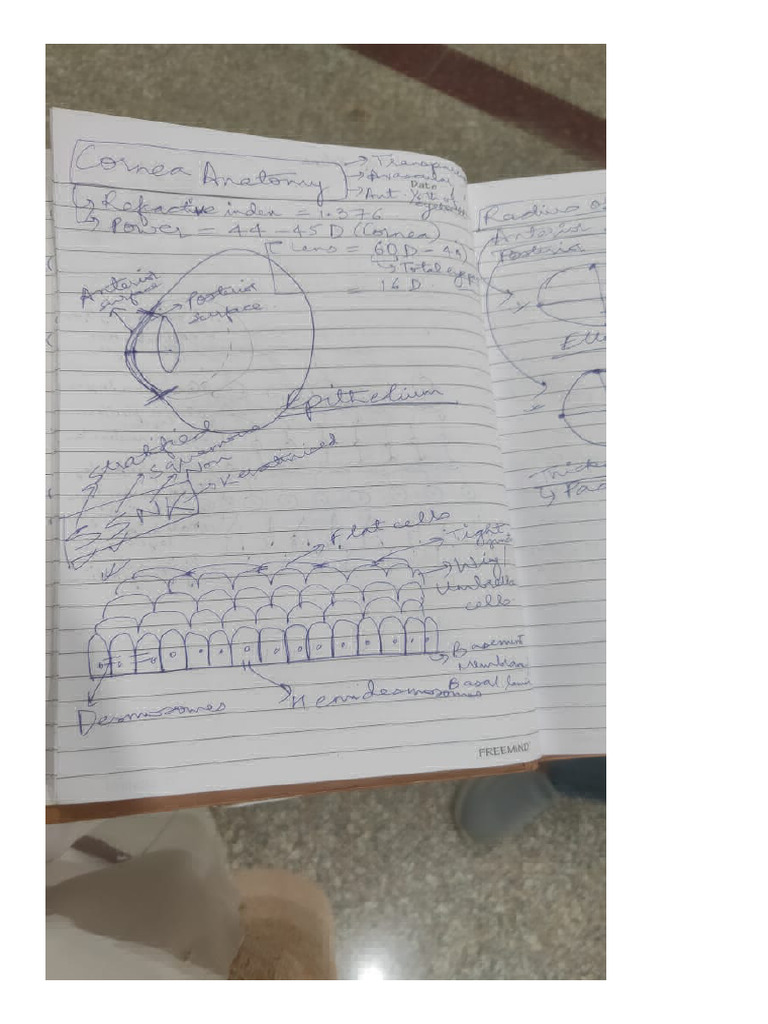 Cornea Anatomy
→ Transpare
→ Avascular
→ Ant.
↳ Refractive index = 1.376
↳ Power = 44 - 45 D (Cornea)
Lens = 60 D - 44
↳ Total eye
= 16 D
Anterior surface
Posterior surface
Epithelium
Stratified
Squamous
Non
Keratinised
SSNK
Flat cells
Tight
Wing
Umbrella
cells
Basement
Membran
Basal lam
Desmosomes
Hemidesmosomes
FREEMIND
Radius o
Anterior
Posterior
Ell